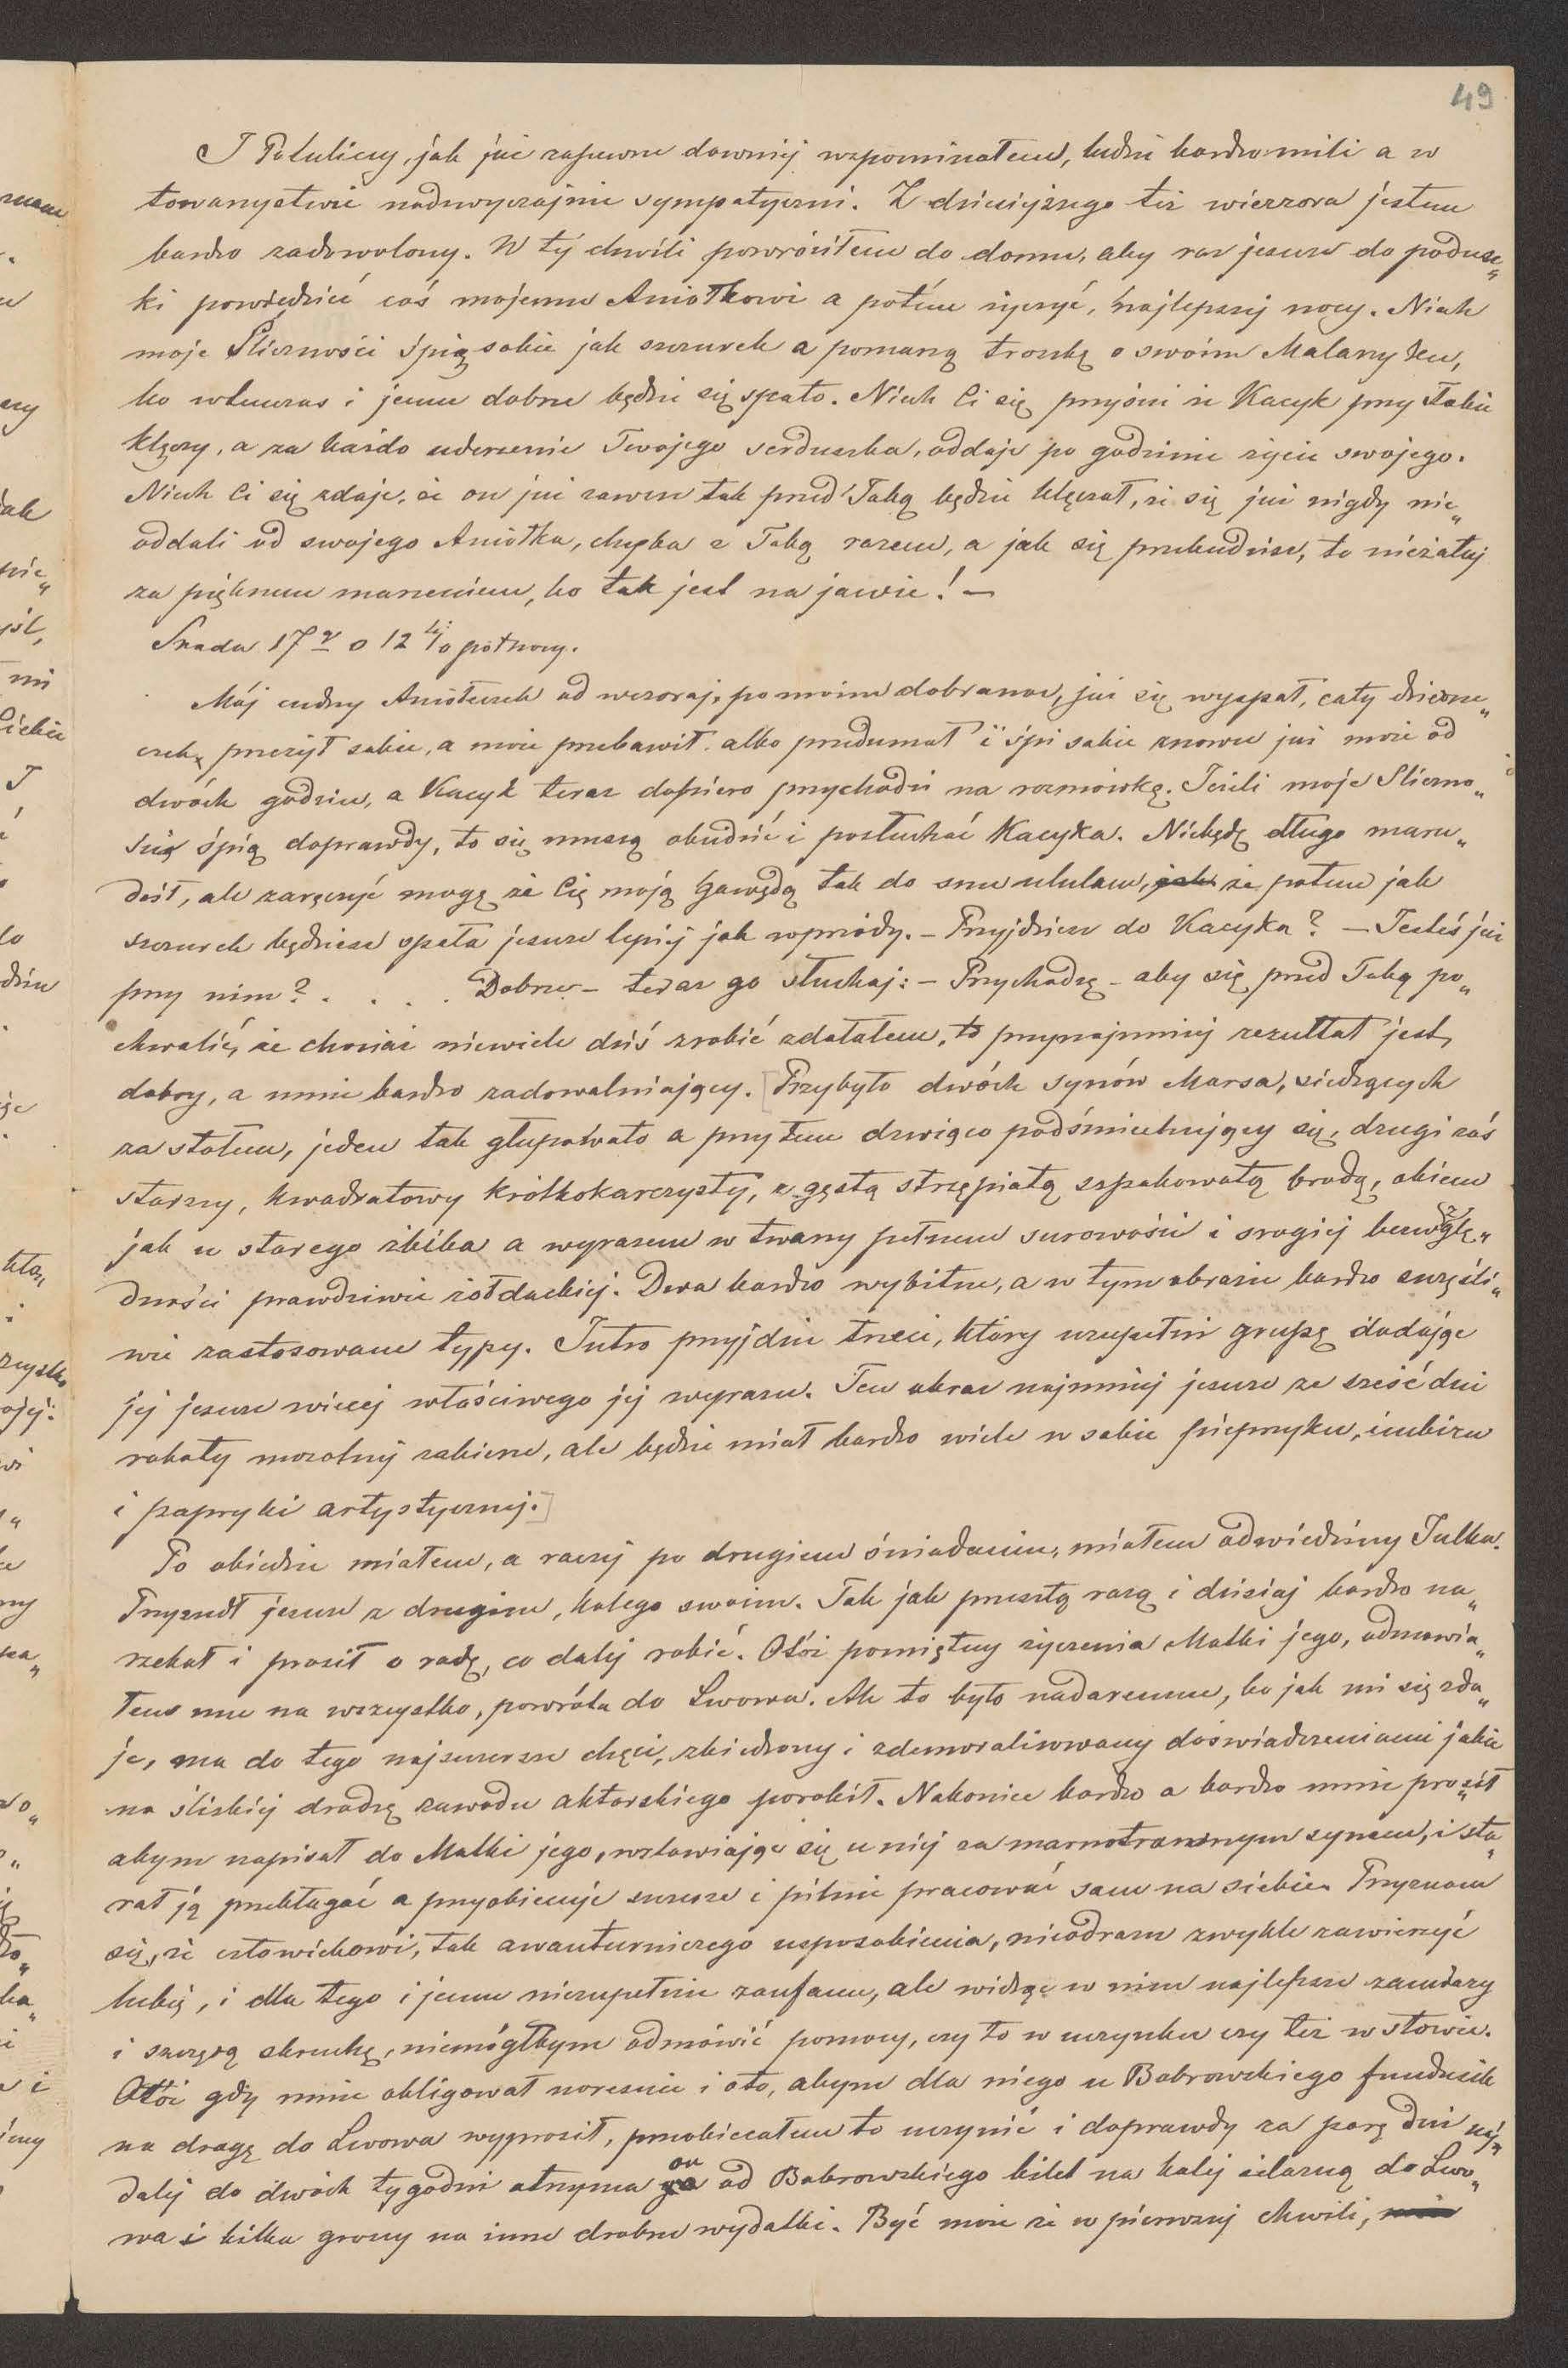 49
I Potuliccy, jak już zapewne dawniej wspominałem, ludzie bardzo mili a w
towarzystwie nadzwyczajnie sympatyczni. Z dzisiejszego też wieczora jestem
bardzo zadowolony. W tej chwili powróciłem do domu, aby raz jeszcze do podusz„
ki powiedzieć coś mojemu Aniołkowi a potém życzyć, najlepszej nocy. Niech
moje Śliczności śpią sobie jak szczurek a pomarzą troszkę o swoim Malarzyku,
bo wtenczas i jemu dobrze będzie się spało. Niech Ci się przyśni że Kacyk przy Tobie
klęczy, a za każdo uderzenie Twojego serduszka, oddaje po godzinie życia swojego.
Niech Ci się zdaje, że on już zawsze tak przed Tobą będzie klęczał, że się już nigdy nie„
oddali od swojego Aniołka, chyba z Tobą razem, a jak się przebudzisz, to nieżałuj
za pięknem marzeniem, bo tak jest na jawie! —
Środa 17 o 12 północy.
Mój cudny Aniołeczek od wczoraj, po moim dobranoc, już się wyspał, cały dzione„
czek, przeżył sobie, a może przebawił albo przedumał i śpi sobie znowu już może od
dwóch godzin, a Kacyk teraz dopiero przychodzi na rozmówkę. Jeżeli moje Śliczno„
ście śpią doprawdy, to się muszą obudzić i posłuchać Kacyka. Niebędę długo maru„
dził, ale zaręczyć mogę że Cię moją gawędą tak do snu ululam, jak że potem jak
szczurek będziesz spała jeszcze lepiej jak wprzódy. – Przyjdziesz do Kacyka? — Jesteś już
przy nim? . . . . Dobrze – teraz go słuchaj: – Przychodzę – aby się przed Tobą po„
chwalić, że chociaż niewiele dziś zrobić zdołałem, to przynajmniej rezultat jest
dobry, a mnie bardzo zadowalniający. [Przybyło dwóch synów Marsa, siedzących
za stołem, jeden tak głupowato a przytem drwiąco podśmiechujący się, drugi zaś
starszy, kwadratowy krótkokarczysty, z gęstą strzępiatą szpakowatą brodą, okiem
jak u starego żbika a wyrazem w twarzy pełnem surowości i srogiej bezwzglę„
dności prawdziwie żołdackiej. Dwa bardzo wybitne, a w tym obrazie bardzo szczęśli„
wie zastosowane typy. Jutro przyjdzie trzeci, który uzupełni grupę dodając
jej jeszcze więcej właściwego jej wyrazu. Ten obraz najmniej jeszcze ze sześć dni
roboty mozolnej zabierze, ale będzie miał bardzo wiele w sobie pieprzyku, imbiru
i papryki artystycznej.]
Po obiedzie miałem, a raczej po drugiem śniadaniu, miałem odwiedziny Julka.
Przyszedł jeszcze z drugim, kolegą swoim. Tak jak przeszłą razą i dzisiaj bardzo na„
rzekał i prosił o radę, co dalej robić. Otóż pomiętny życzenia Matki jego, odmawia„
łem mu na wszystko, powrótu do Lwowa. Ale to było nadaremne, bo jak mi się zda„
je, ma do tego najszczersze chęci, zbiedzony i zdemoralizowany doświadczeniami jakie
na śliskiej drodze zawodu aktorskiego porobił. Nakoniec bardzo a bardzo mnie prosił
abym napisał do Matki jego, wstawiając się u niej za marnotrawnym synem, i sta„
rał ją przebłagać a przyobiecuje szczerze i pilnie pracować sam na siebie. Przyznam
się, że człowiekowi, tak awanturniczego usposobienia, nieodrazu zwykle zawierzyć
lubię, i dla tego i jemu niezupełnie zaufam, ale widząc w nim najlepsze zamiary
i szczerą skruchę, niemógłbym odmówić pomocy, czy to w uczynku czy też w słowie.
Otóż gdy mnie obligował wreszcie i oto, abym dla niego u Bobrowskiego fundusik
na drogę do Lwowa wyprosił, przobiecałem to uczynić i doprawdy za parę dni naj„
dalej do dwóch tygodni otrzyma on od Bobrowskiego bilet na kolej żelazną do Lwo„
wa i kilka groszy na inne drobne wydatki. Być może że w pierwszej chwili,